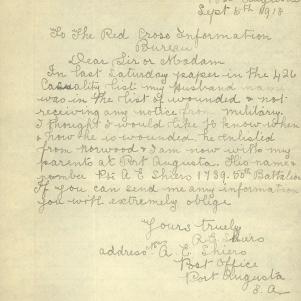 Sept 8th 1918
To The Red Cross Information
Bureau
Dear Sir or Madam
In last Saturday paper in the 426
Casuality list my husband name
was in the list of wounded & not
receiving any notice from Military.
I thought I would like to know when
& how he is wounded. he enlisted
from Norwood & I am now with my
parents at Port Augusta. His name &
number Pte A E Shiers 1739. 50th Battalion
If you can send me any information
you will extremely oblige
Yours truly
A E Shiers
address A. E Shiers
Post Office
Port Augusta
S. A